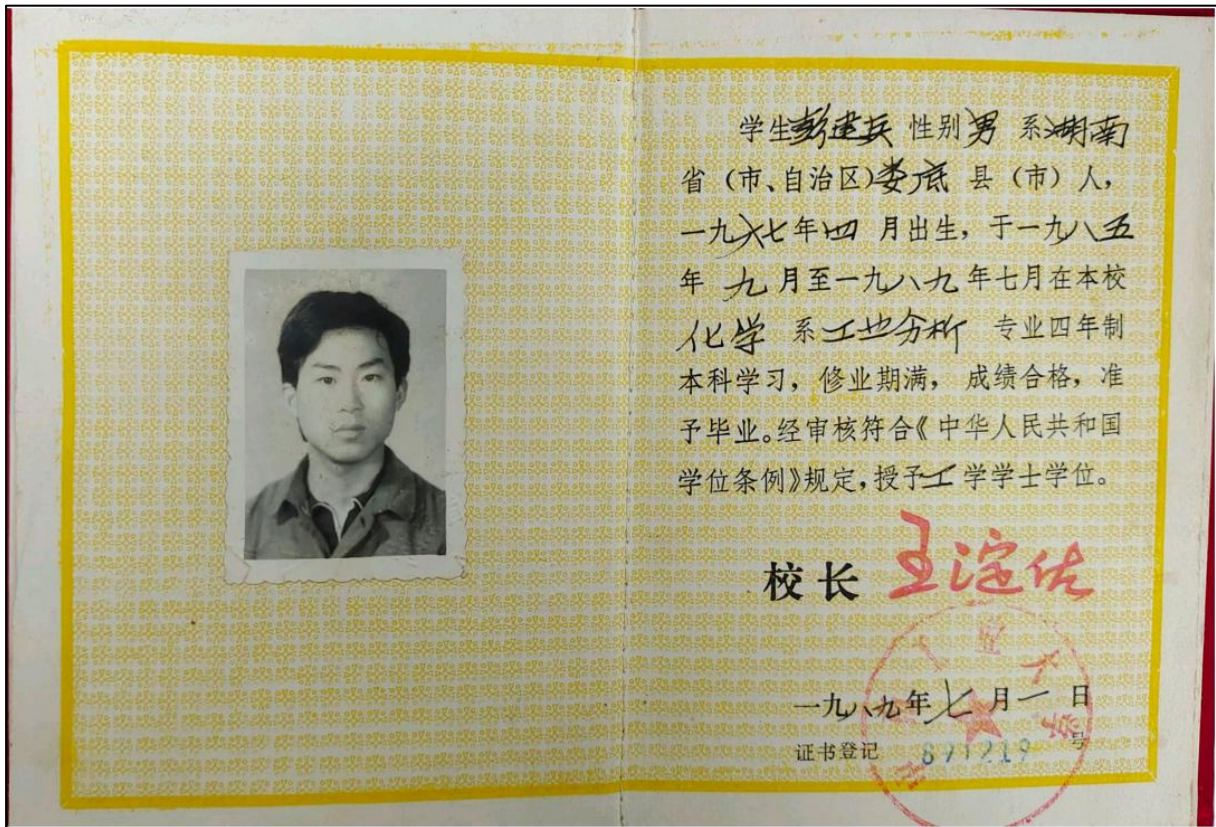 学生彭建兵 性别男 系湖南
省（市、自治区）娄底 县（市）人，
一九六七年四 月出生，于一九八五
年 九 月至一九八九 年七月在本校
化学 系工业分析 专业四年制
本科学习，修业期满，成绩合格，准
予毕业。经审核符合《中华人民共和国
学位条例》规定，授予工学学士学位。
校长 王淀佐
工业大学
一九八九年七月一日
证书登记 891219 号